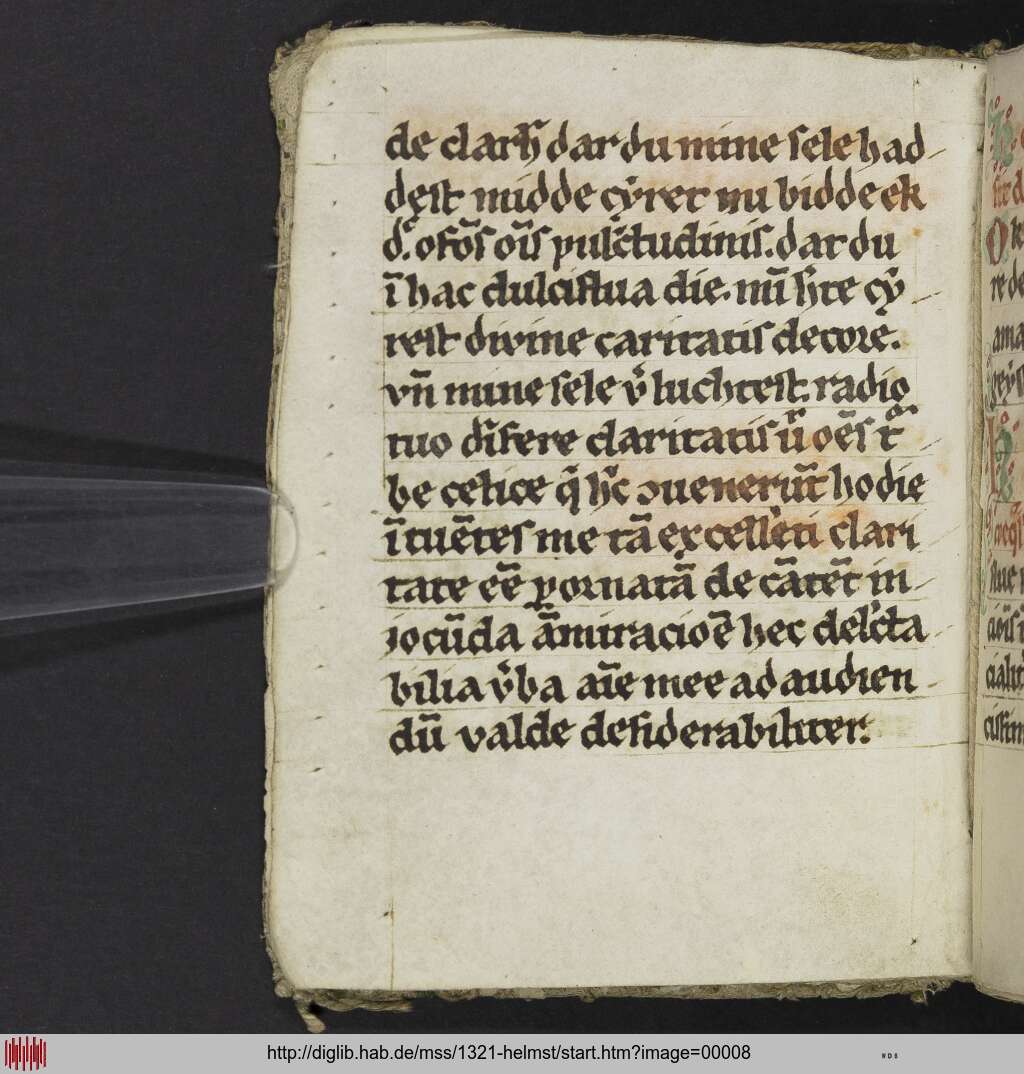 de clarh̄ dar du mine sele had
dest midde cẏret nu bidde ek
d͛. o fōs oīs pulc͛tudinis. dar du
ī hac dulcistua die. mī h͛te cẏ
rest divine caritatis decore.
vn̄ mine sele v͛luchtest. radio
tuo dīfere claritatis
be celice q̄ h͛c ꝯuenerūt hodie
ītuētes me tā excellēti clari
tate eē ꝑornatā decātēt in
iocūda āmiracioē hec delc͛ta
bilia v͛ba aīe mee ad audien
dū valde desiderabiliter.
http://diglib.hab.de/mss/1321-helmst/start.htm?image=00008